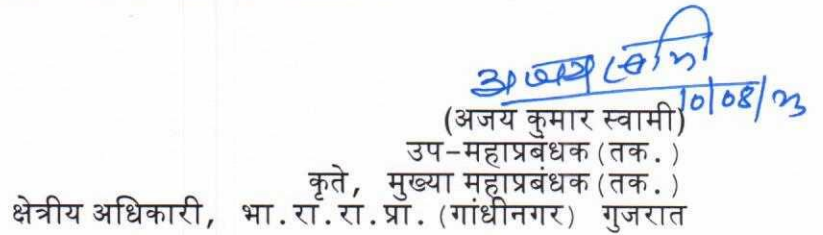 अजय स्वामी
10/08/23
(अजय कुमार स्वामी)
उप-महाप्रबंधक(तक.)
कृते, मुख्या महाप्रबंधक(तक.)
क्षेत्रीय अधिकारी, भा.रा.रा.प्रा.(गांधीनगर) गुजरात